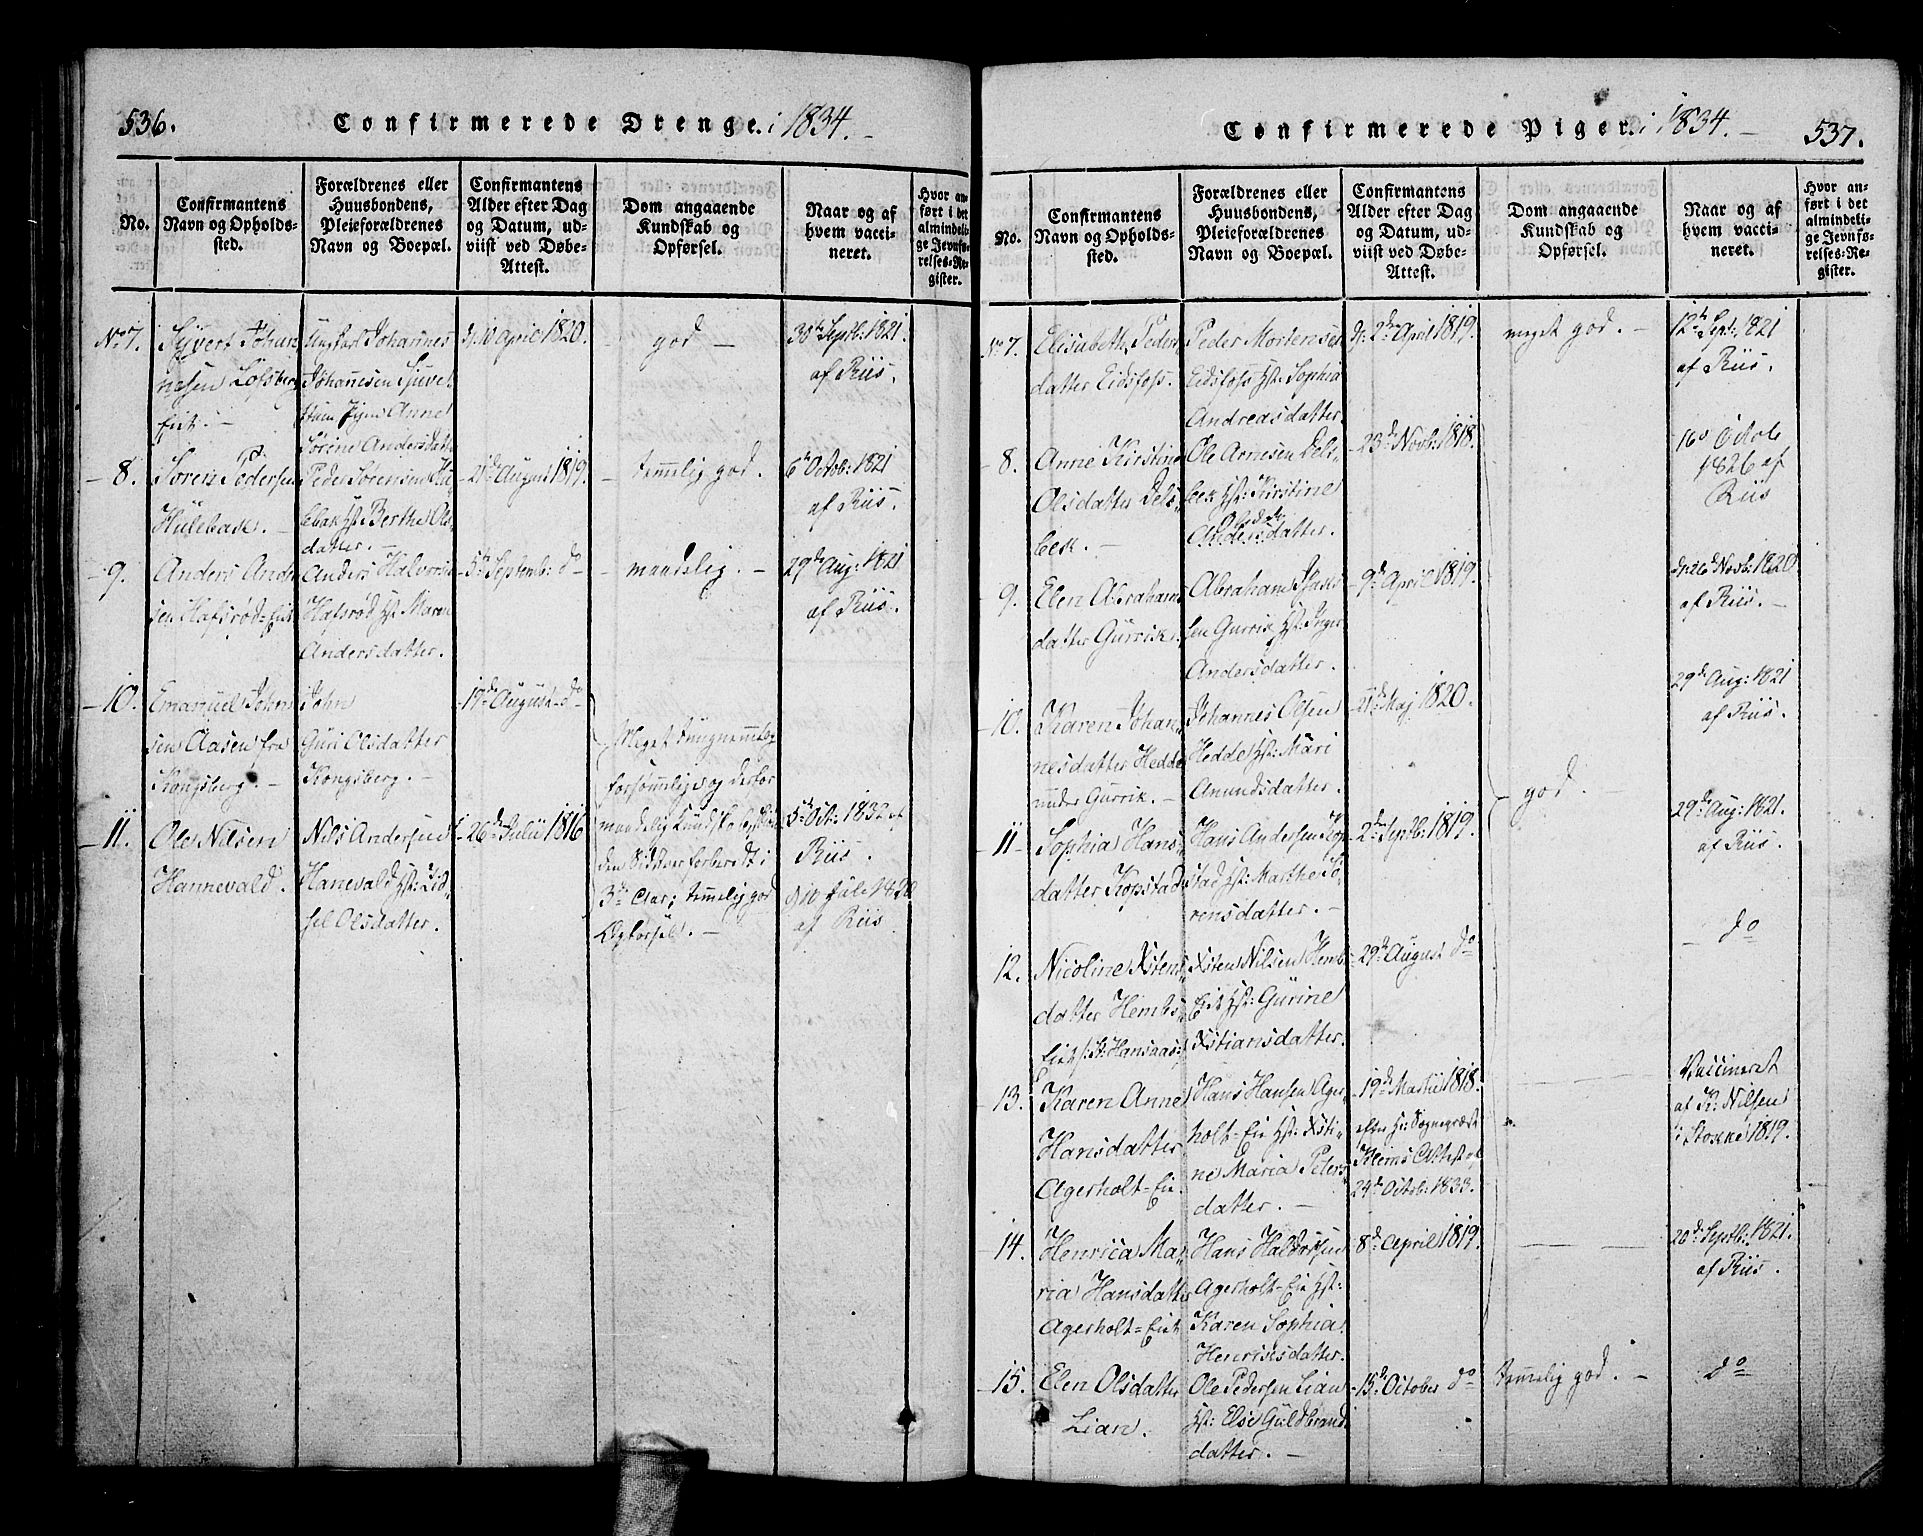 536.
Confirmerede Drenge. i 1834.
No.
Confirmantens Navn og Opholds-sted.
Forældrenes eller Huusbondens, Pleieforældrenes Navn og Boepæl.
Confirmantens Alder efter Dag og Datum, ud-viist ved Døbe-Attest.
Dom angaaende Kundskab og Opførsel.
Naar og af hvem vacci-neret.
Hvor an-ført i det almindeli-ge Jevnfø-relses-Re-gister.
No 7.
Syvert Johan-
nesen
Eiet. -
Johannes
Johannesen
Anne
Sørine Andersdatter
10 April 1820.
god -
30te Septb: 1821.
af Riis.
8.
Søren Pedersen
Hulebak. -
Peder Sørensen Hu-
lebak Hst: Berthe Ols-
datter. -
21de August 1819.
temmelig god.
6te Octob: 1821
af Riis.
9.
Anders Ander-
sen Hafsrød-Eiet
Anders Halvorsen
Hafsrød Hst: Maren
Andersdatter.
5te Septemb: do
maadelig. -
29de Aug: 1821
af Riis.
10.
Emanuel Johns
sen Aasen fra
Kongsberg. -
John
Guri Olsdatter
Kongsberg. -
19de August do
Meget tungnemmelig
forsømmelig og derfor
maadelig Kundskab
3de Aar; temmelig god
Opførsel. -
11.
Ole Nilsen
Hannevald.
Nils Andersen
Hanevald Hst: Sid-
sel Olsdatter.
26de Julii 1816
5te Oct: 1832 af
Riis.
af Riis
537.
Confirmerede Piger. i 1834.
No.
Confirmantens Navn og Opholds-sted.
Forældrenes eller Huusbondens, Pleieforældrenes Navn og Boepæl.
Confirmantens Alder efter Dag og Datum, ud-viist ved Døbe-Attest.
Dom angaaende Kundskab og Opførsel.
Naar og af hvem vacci-neret.
Hvor an-ført i det almindeli-ge Jevnfø-relses-Re-gister.
No 7.
Elisabeth Peders
datter Eidsfoss.
Peder Mortensen
Eidsfoss Hst: Sophia
Andreasdatter.
2den April 1819.
meget god. -
12te Sept: 1821
af Riis.
8.
Anne Kirstine
Olsdatter Dels-
bek. -
Ole Arnesen Dels-
bek Hst: Kirstine
Andersdatter.
23de Novb: 1818.
16 Octob
1826 af
Riis
9.
Elen Abrahams
datter Gurrik.
Abraham
sen Gurrik Hst: Inger
Andersdatter.
9de April 1819.
26de Novb: 1820.
af Riis. -
10.
Karen Johan-
nesdatter Hedde
under Gurrik. -
Johannes Olsen
Hedde Hst: Mari
Amundsdatter.
21de Maj 1820.
god. -
29de Aug: 1821
af Riis.
11
Sophia Hans
datter Kopstad
Hans Andersen Kop-
stad Hst: Marthe Sø-
rensdatter. -
2den Septb: 1819.
29de Aug: 1821.
af Riis.
12.
Nicoline Xstens-
datter Hembs-
Eiet /: St. Hansaas:/
Xsten Nilsen Hembs-
Eiet Hst: Gurine
Xstiansdatter.
29de August do
do
13.
Karen Anne
Hansdatter
Agerholt-Eie.
Hans Hansen Ager-
holt-Eie Hst: Xsti-
ne Maria Peters
datter. -
19de Martii 1818.
efter Hr: Sognepræst
Attest af
24de Octob: 1833.
Vaccineret
af K: Nilsen
i Stokke 1819.
14.
Henrica Ma-
ria Hansdatter
Agerholt-Eiet
Hans Halvorsen
Agerholt-Eie Hst:
Karen Sophia
Henricsdatter.
8de April 1819.
20de Septb: 1821.
af Riis.
15.
Elen Olsdatter
Lian.
Ole Pedersen Lian
Hst: Else Guldbrands
datter. -
15de October do
temmelig god. -
do